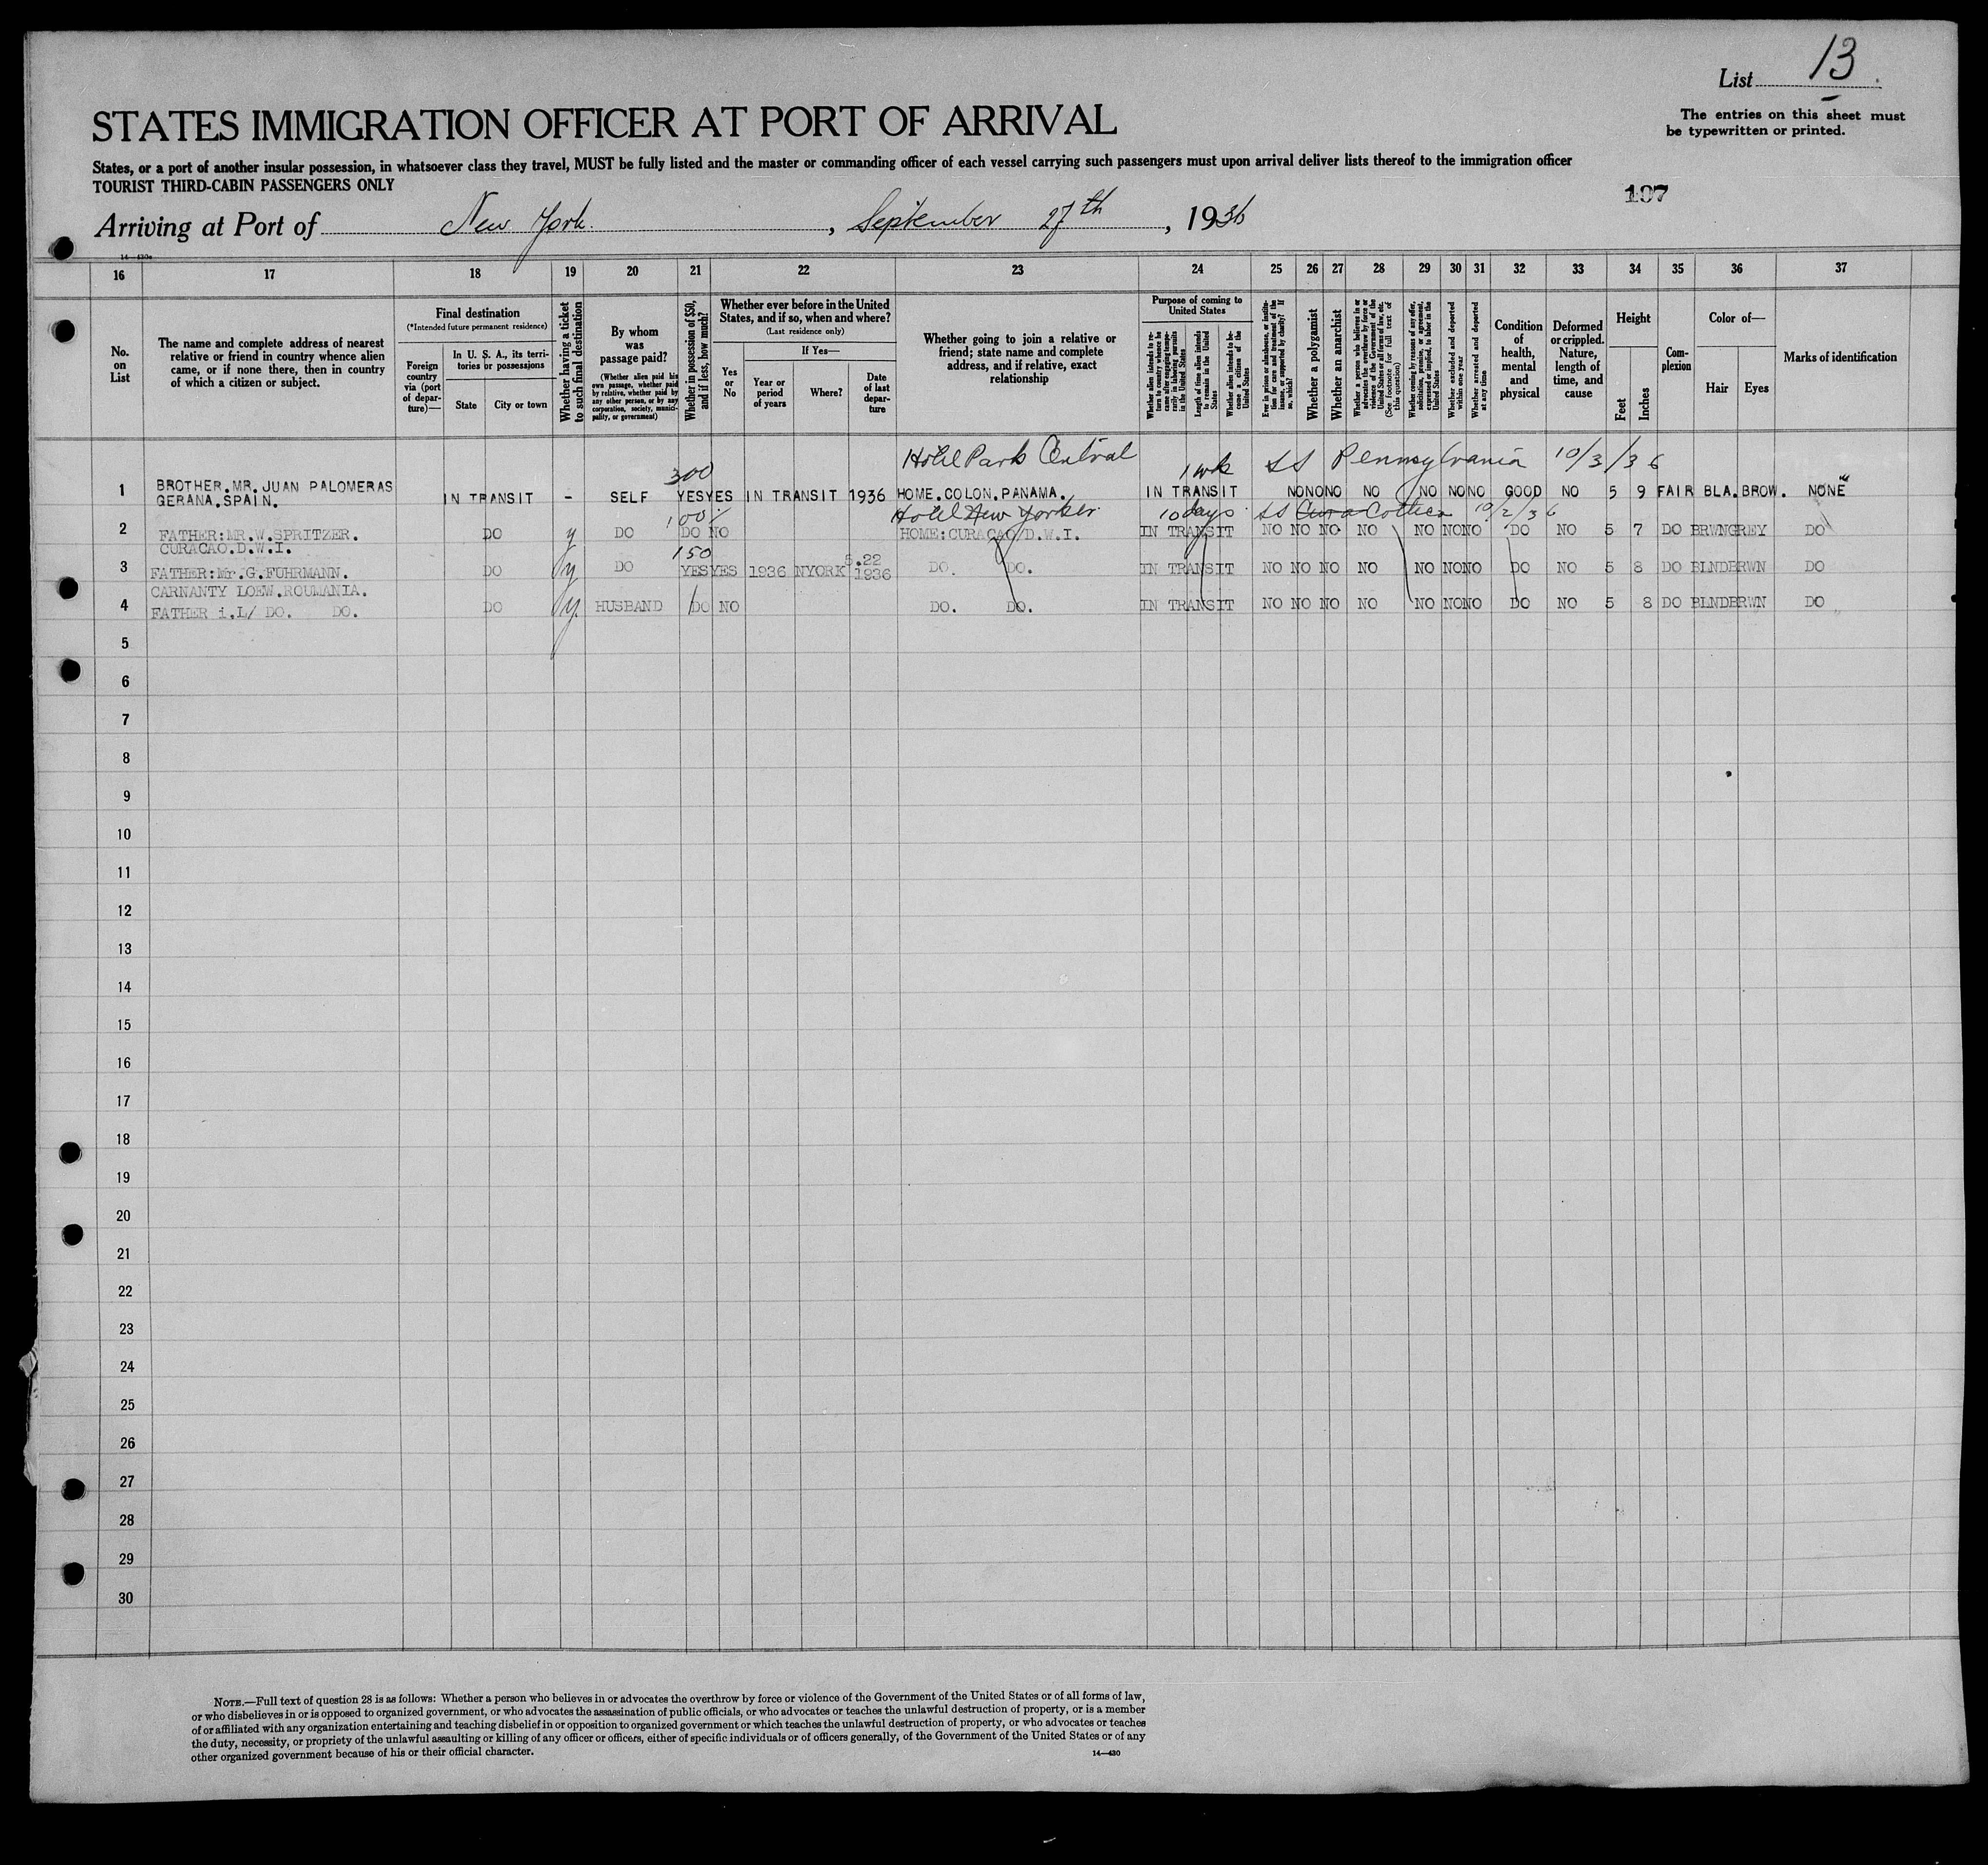 List 13
The entries on this sheet must
be typewritten or printed.
STATES IMMIGRATION OFFICER AT PORT OF ARRIVAL
States, or a port of another insular possession, in whatsoever class they travel, MUST be fully listed and the master or commanding officer of each vessel carrying such passengers must upon arrival deliver lists thereof to the immigration officer
TOURIST THIRD-CABIN PASSENGERS ONLY
197
Arriving at Port of New York. , September 27th , 1936
16 17 18 19 20 21 22 23 24 25 26 27 28 29 30 31 32 33 34 35 36 37
No. on List
The name and complete address of nearest
relative or friend in country whence alien
came, or if none there, then in country
of which a citizen or subject.
Final destination
(*Intended future permanent residence)
Foreign country via (port of departure)—
In U. S. A., its territories or possessions
State
City or town
Whether having a ticket to such final destination
By whom was passage paid?
(Whether alien paid his own passage, whether paid by relative, whether paid by any other person, or by any corporation, society, municipality, or government)
Whether in possession of $50, and if less, how much?
Whether ever before in the United
States, and if so, when and where?
(Last residence only)
Yes or No
If Yes—
Year or period of years
Where?
Date of last departure
Whether going to join a relative or
friend; state name and complete
address, and if relative, exact
relationship
Purpose of coming to United States
Whether alien intends to return to country whence he came after engaging temporarily in laboring pursuits in the United States
Length of time alien intends to remain in the United States
Whether alien intends to become a citizen of the United States
Ever in prison or almshouse, or institution for care and treatment of the insane, or supported by charity? If so, which?
Whether a polygamist
Whether an anarchist
Whether a person who believes in or advocates the overthrow by force or violence of the Government of the United States or all forms of law, etc. (See footnote for full text of this question)
Whether coming by reasons of any offer, solicitation, promise, or agreement, expressed or implied, to labor in the United States
Whether excluded and deported within one year
Whether arrested and deported at any time
Condition of health, mental and physical
Deformed or crippled. Nature, length of time, and cause
Height
Feet
Inches
Complexion
Color of—
Hair
Eyes
Marks of identification
Hotel Park Central 1 wk SS Pennsylvania 10/3/36
300
1 BROTHER.MR.JUAN PALOMERAS
GERANA.SPAIN. IN TRANSIT - SELF YES YES IN TRANSIT 1936 HOME.COLON.PANAMA. IN TRANSIT NO NO NO NO NO NO NO GOOD NO 5 9 FAIR BLA. BROW. NONE
100 Hotel New Yorker 10 days SS 10/2/36
2 FATHER:MR.W.SPRITZER. DO y DO DO NO HOME:CURACAO/D.W.I. IN TRANSIT NO NO NO NO NO NO NO DO NO 5 7 DO BRWN GREY DO
CURACAO.D.W.I.
150 5.22
3 FATHER:Mr.G.FUHRMANN. DO y DO YES YES 1936 NYORK 1936 DO. DO. IN TRANSIT NO NO NO NO NO NO NO DO NO 5 8 DO BLND BRWN DO
CARNANTY LOEW.ROUMANIA.
4 FATHER i.L/ DO. DO. DO y HUSBAND DO NO DO. DO. IN TRANSIT NO NO NO NO NO NO NO DO NO 5 8 DO BLND BRWN DO
5
6
7
8
9
10
11
12
13
14
15
16
17
18
19
20
21
22
23
24
25
26
27
28
29
30
NOTE.—Full text of question 28 is as follows: Whether a person who believes in or advocates the overthrow by force or violence of the Government of the United States or of all forms of law,
or who disbelieves in or is opposed to organized government, or who advocates the assassination of public officials, or who advocates or teaches the unlawful destruction of property, or is a member
of or affiliated with any organization entertaining and teaching disbelief in or opposition to organized government or which teaches the unlawful destruction of property, or who advocates or teaches
the duty, necessity, or propriety of the unlawful assaulting or killing of any officer or officers, either of specific individuals or of officers generally, of the Government of the United States or of any
other organized government because of his or their official character.
14—430